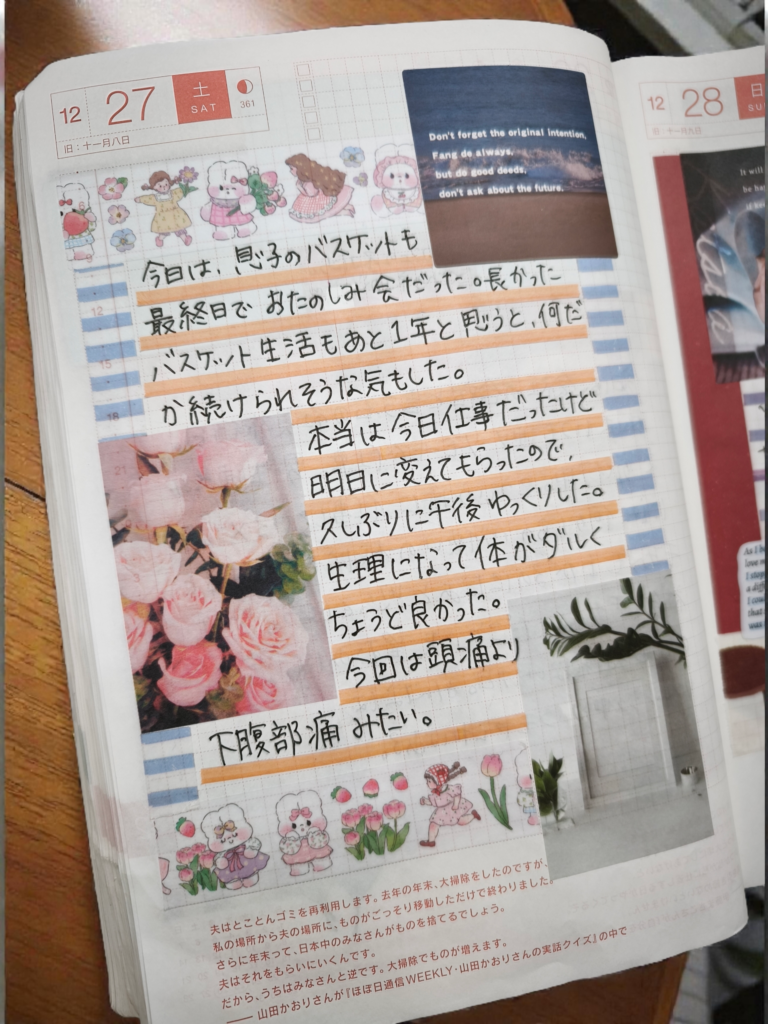 12
27
土
SAT
361
旧：十一月八日
Don't forget the original intention,
Fang de always,
but do good deeds,
don't ask about the future.
今日は、息子のバスケットも
最終日で おたのしみ会だった。長かった
バスケット生活もあと1年と思うと、何だ
か続けられそうな気もした。
本当は今日仕事だったけど
明日に変えてもらったので、
久しぶりに午後ゆっくりした。
生理になって体がダルく
ちょうど良かった。
今回は頭痛より
下腹部痛 みたい。
12
15
18
21
夫はとことんゴミを再利用します。去年の年末、大掃除をしたのですが、
私の場所から夫の場所に、ものがごっそり移動しただけで終わりました。
さらに年末って、日本中のみなさんがものを捨てるでしょう。
夫はそれをもらいにいくんです。
だから、うちはみなさんと逆です。大掃除でものが増えます。
── 山田かおりさんが『ほぼ日通信WEEKLY・山田かおりさんの実話クイズ』の中で
12
28
日
旧：十一月九日
It will
be ha